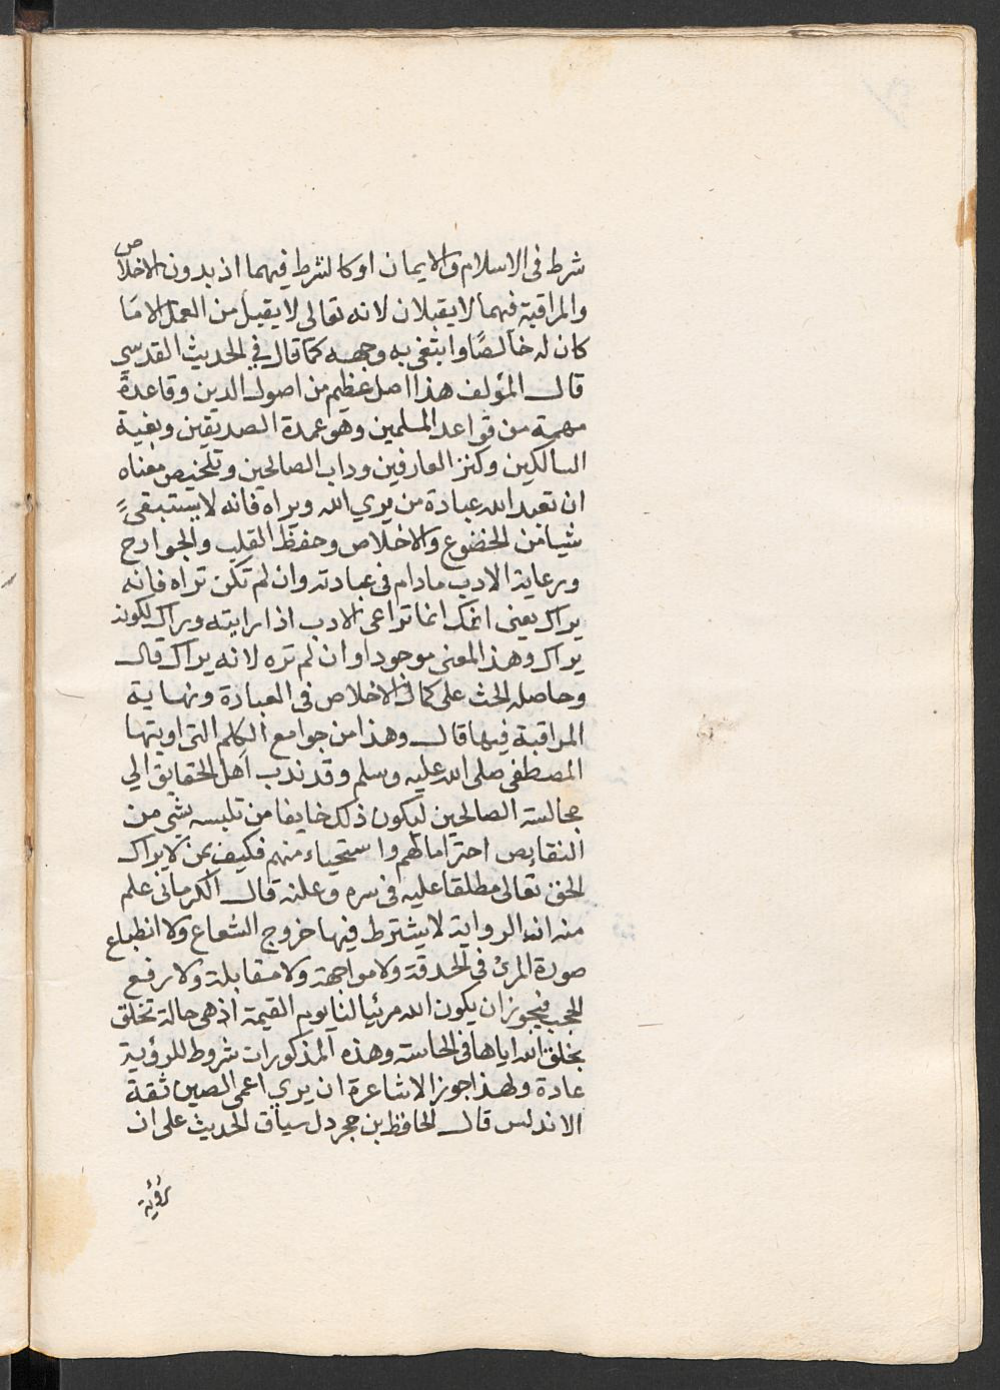 شرط فى الاسلام والايمان او كالشرط فيهما اذ بدون الاخلاص
والمراقبة فيهما لا يقبلان لانه تعالى لا يقبل من العمل الا ما
كان له خالصًا وابتغى به وجهه كما قال في الحديث القدسي
قال المؤلف هذا اصل عظيم من اصول الدين وقاعدة
مهمة من قواعد المسلمين وهو عمدة الصديقين وبغية
السالكين وكنز العارفين وداب الصالحين وتلخيص معناه
ان تعبد الله عبادة من يري الله ويراه فانه لا يستبقى
شيا من الخضوع والاخلاص وحفظ القلب والجوارح
ورعاية الادب مادام فى عبادته وان لم تكن تراه فانه
يراك يعنى انك انما تراعى الادب اذا رايته وراك لكونه
يراك وهذا المعنى موجود او ان لم تره لانه يراك قال
وحاصله الحث على كمال الاخلاص فى العبادة ونهاية
المراقبة فيها قال وهذا من جوامع الكلم التى اويتها
المصطفى صلى الله عليه وسلم وقد ندب اهل الحقايق الي
مجالسة الصالحين ليكون ذلك خايفا من تلبسه بشي من
النقايص احتراما لهم واستحياء منهم فكيف بمن لا يراك
الحق تعالى مطلقا عليه فى سره وعلنه قال الكرمانى علم
منه ان الرواية لا يشترط فيها خروج الشعاع ولا انطباع
صورة المرئ في الحدقة ولا مواجهة ولا مقابلة ولا رفع
الحجب فيجوز ان يكون الله مرئيا لنا يوم القيمة اذ هى حالة تخلق
بخلق الله اياها فى الحاسة وهذه المذكورات شروط للرؤية
عادة ولهذا جوز الاشاعرة ان يري اعمى الصين ثقة
الاندلس قال الحافظ بن حجر دل سياق الحديث على ان
رؤية